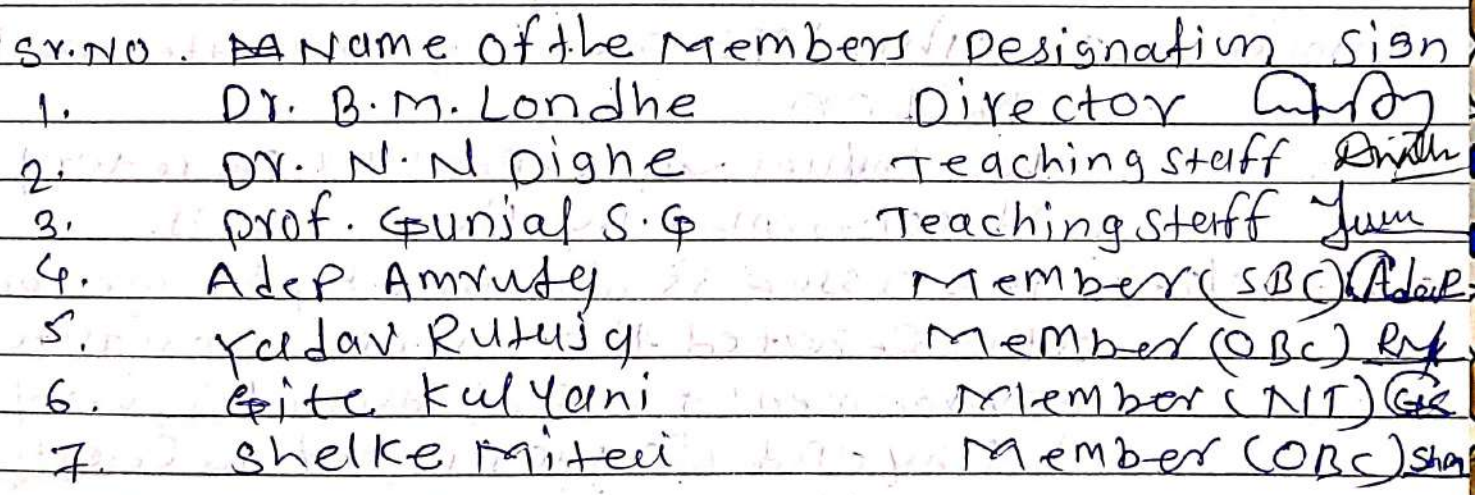 Sr.No. Name of the Members Designation Sign
1. Dr. B.M. Londhe Director
2. Dr. N.N Dighe Teaching staff
3. Prof. Gunjal S.G Teaching staff
4. Adep Amruta Member (SBC) Adep
5. Yadav Rutuja Member (OBC)
6. Gite Kalyani Member (NT)
7. Shelke Member (OBC)